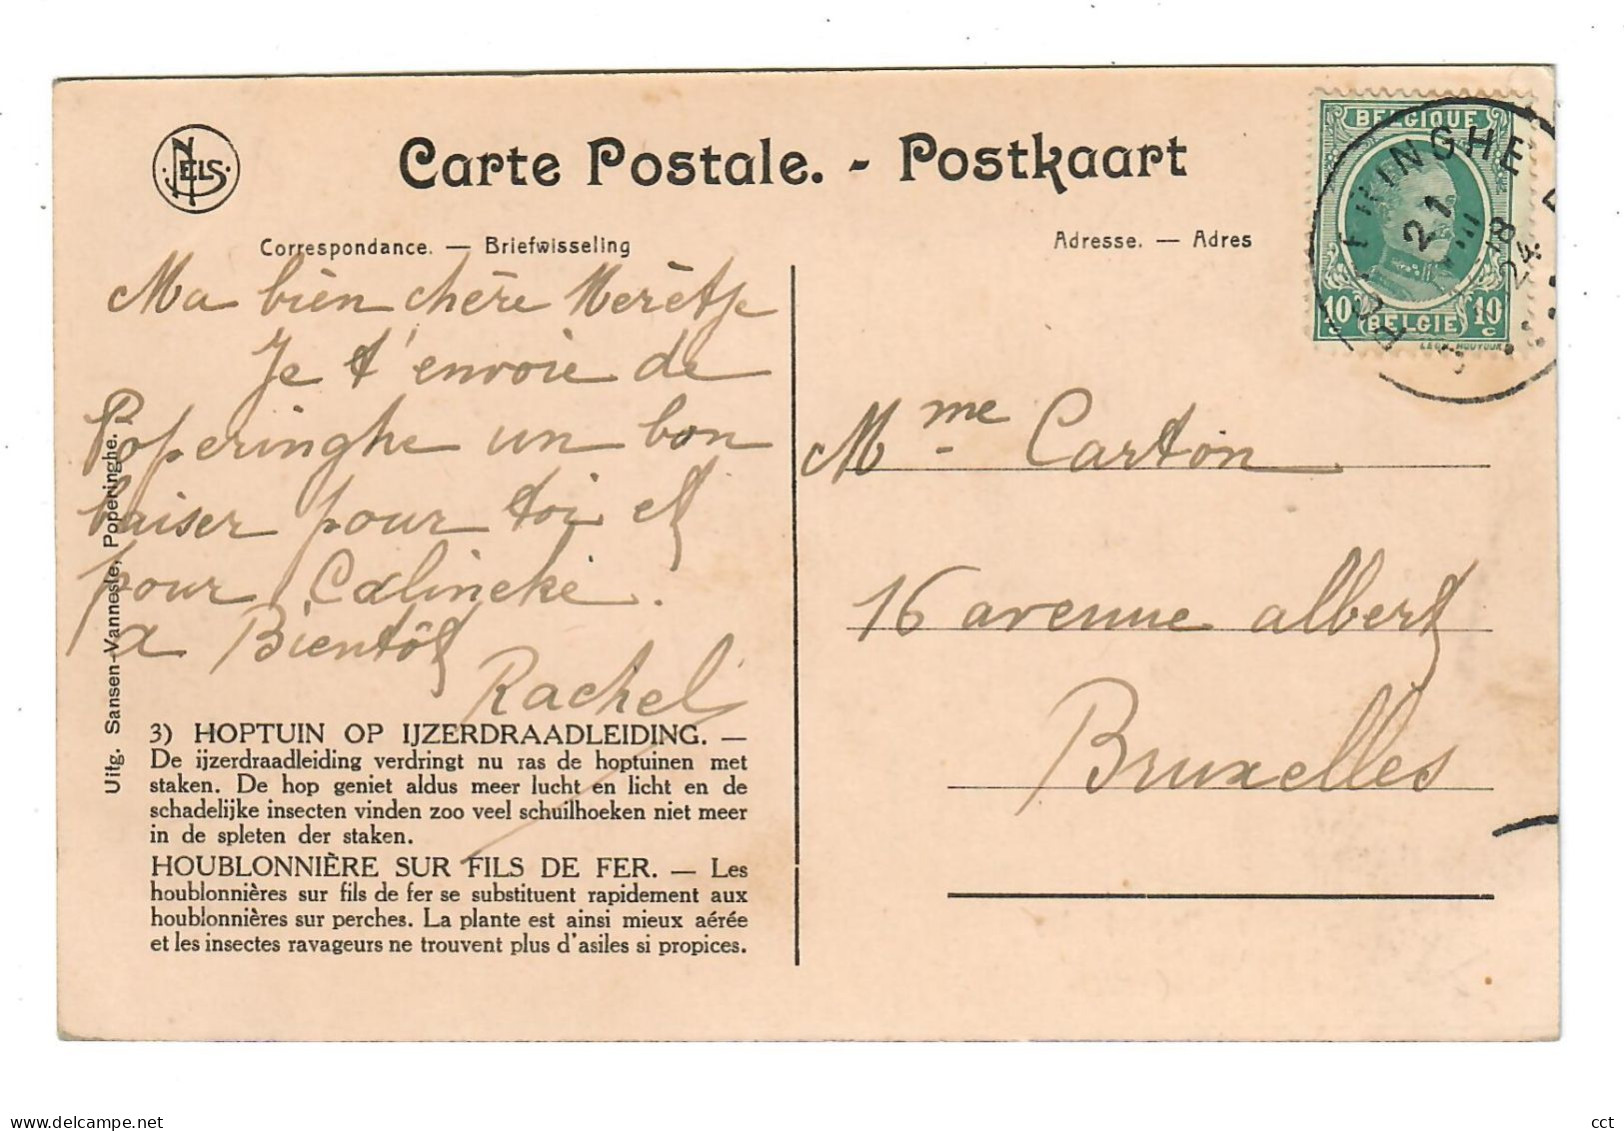 NELS
Carte Postale. - Postkaart
Correspondance. — Briefwisseling
Adresse. — Adres
BELGIQUE
10 c BELGIE 10 c
POPERINGHE
21
VIII
18
24
Ma bien chère
Je t'envoie de
Poperinghe un bon
baiser pour toi et
pour Calineke.
a Bientôt
Rachel
Mme Carton
16 avenue albert
Bruxelles
Uitg. Sansen-Vanneste, Poperinghe.
3) HOPTUIN OP IJZERDRAADLEIDING. —
De ijzerdraadleiding verdringt nu ras de hoptuinen met
staken. De hop geniet aldus meer lucht en licht en de
schadelijke insecten vinden zoo veel schuilhoeken niet meer
in de spleten der staken.
HOUBLONNIÈRE SUR FILS DE FER. — Les
houblonnières sur fils de fer se substituent rapidement aux
houblonnières sur perches. La plante est ainsi mieux aérée
et les insectes ravageurs ne trouvent plus d'asiles si propices.
delcampe.net
cct